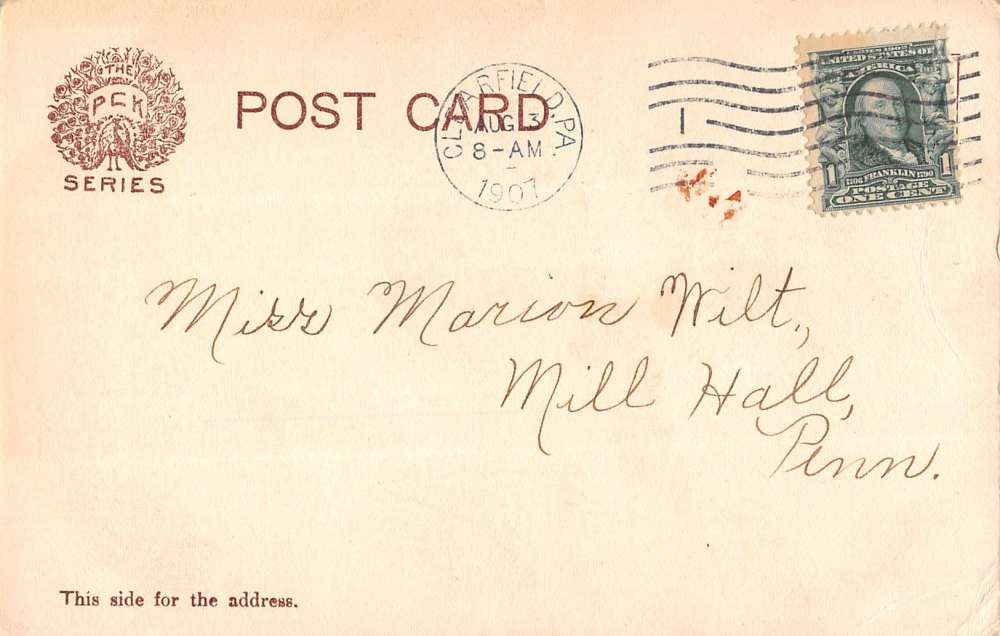 THE
PCK
SERIES
POST CARD
CLEARFIELD, PA.
AUG 3
8-AM
1907
1
SERIES 1902
UNITED STATES OF
AMERICA
1
1706 FRANKLIN 1790
POSTAGE
ONE CENT
Miss Marion Wilt,
Mill Hall,
Penn.
This side for the address.